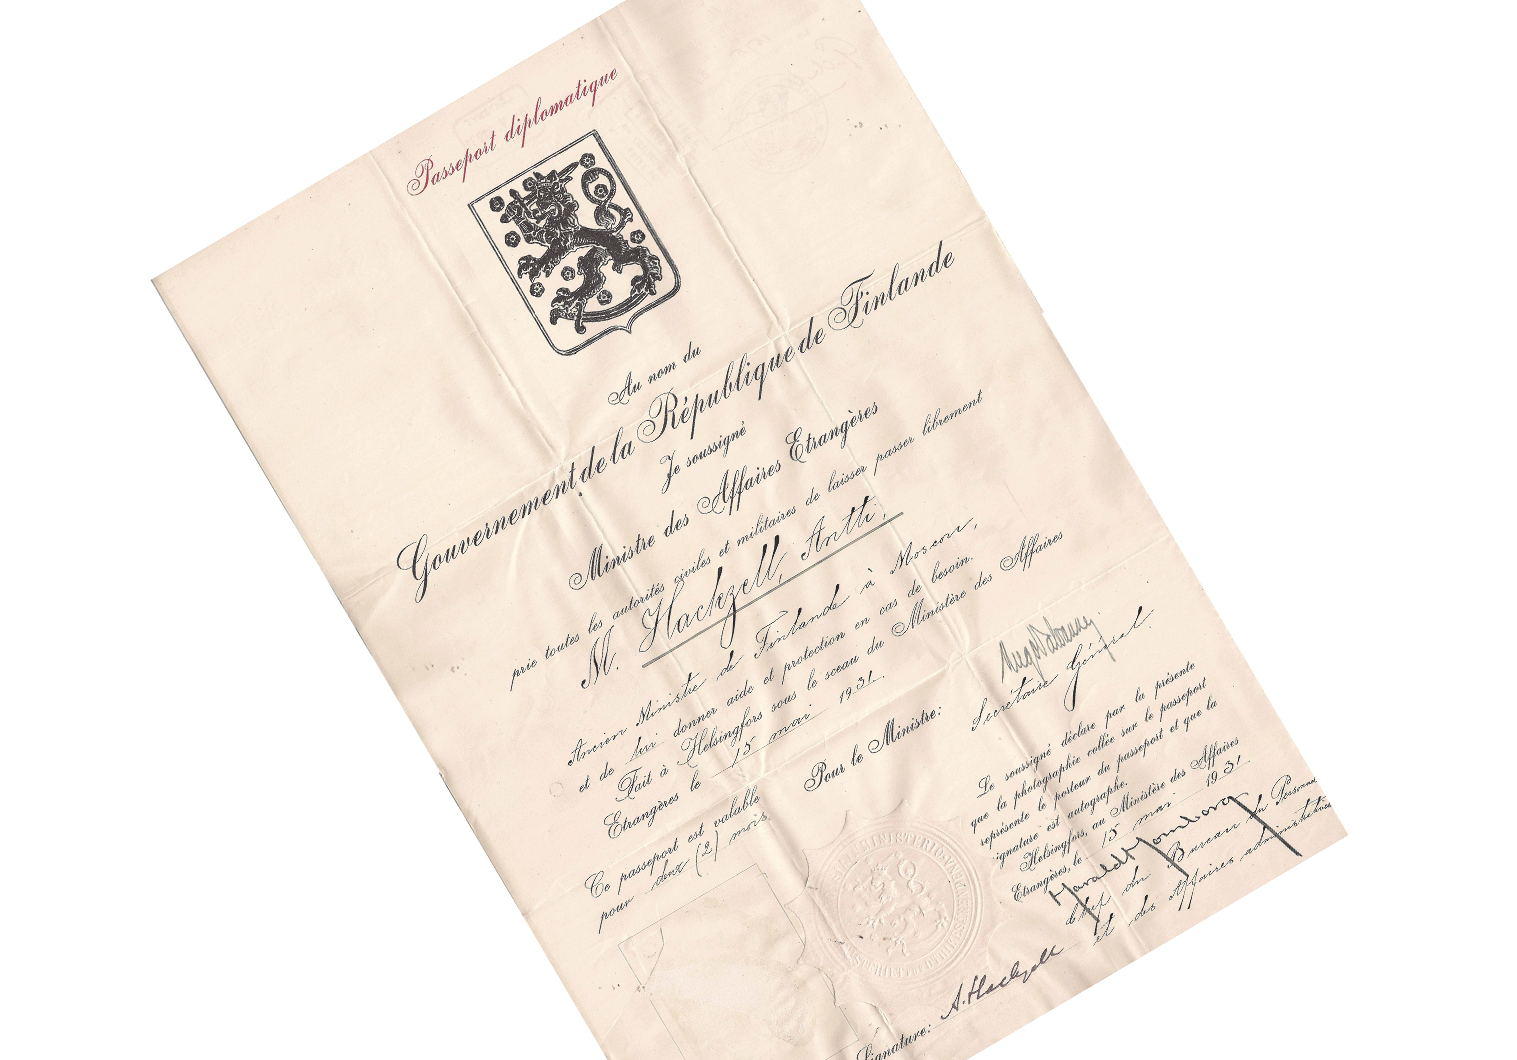 Passeport diplomatique
Au nom du
Gouvernement de la République de Finlande
Je soussigné
Ministre des Affaires Etrangères
prie toutes les autorités civiles et militaires de laisser passer librement
M. Hackzell, Antti,
Ancien Ministre de Finlande à Moscou,
et de lui donner aide et protection en cas de besoin.
Fait à Helsingfors sous le sceau du Ministère des Affaires
Etrangères le 15 mai 1931.
Pour le Ministre:
Secrétaire Général.
Ce passeport est valable
pour deux (2) mois
Le soussigné déclare par la présente
que la photographie collée sur le passeport
représente le porteur du passeport et que la
signature est autographe.
Helsingfors, au Ministère des Affaires
Etrangères, le 15 mai 1931.
Harald
Chef du Bureau du Personnel
et des Affaires administratives
Signature: A. Hackzell